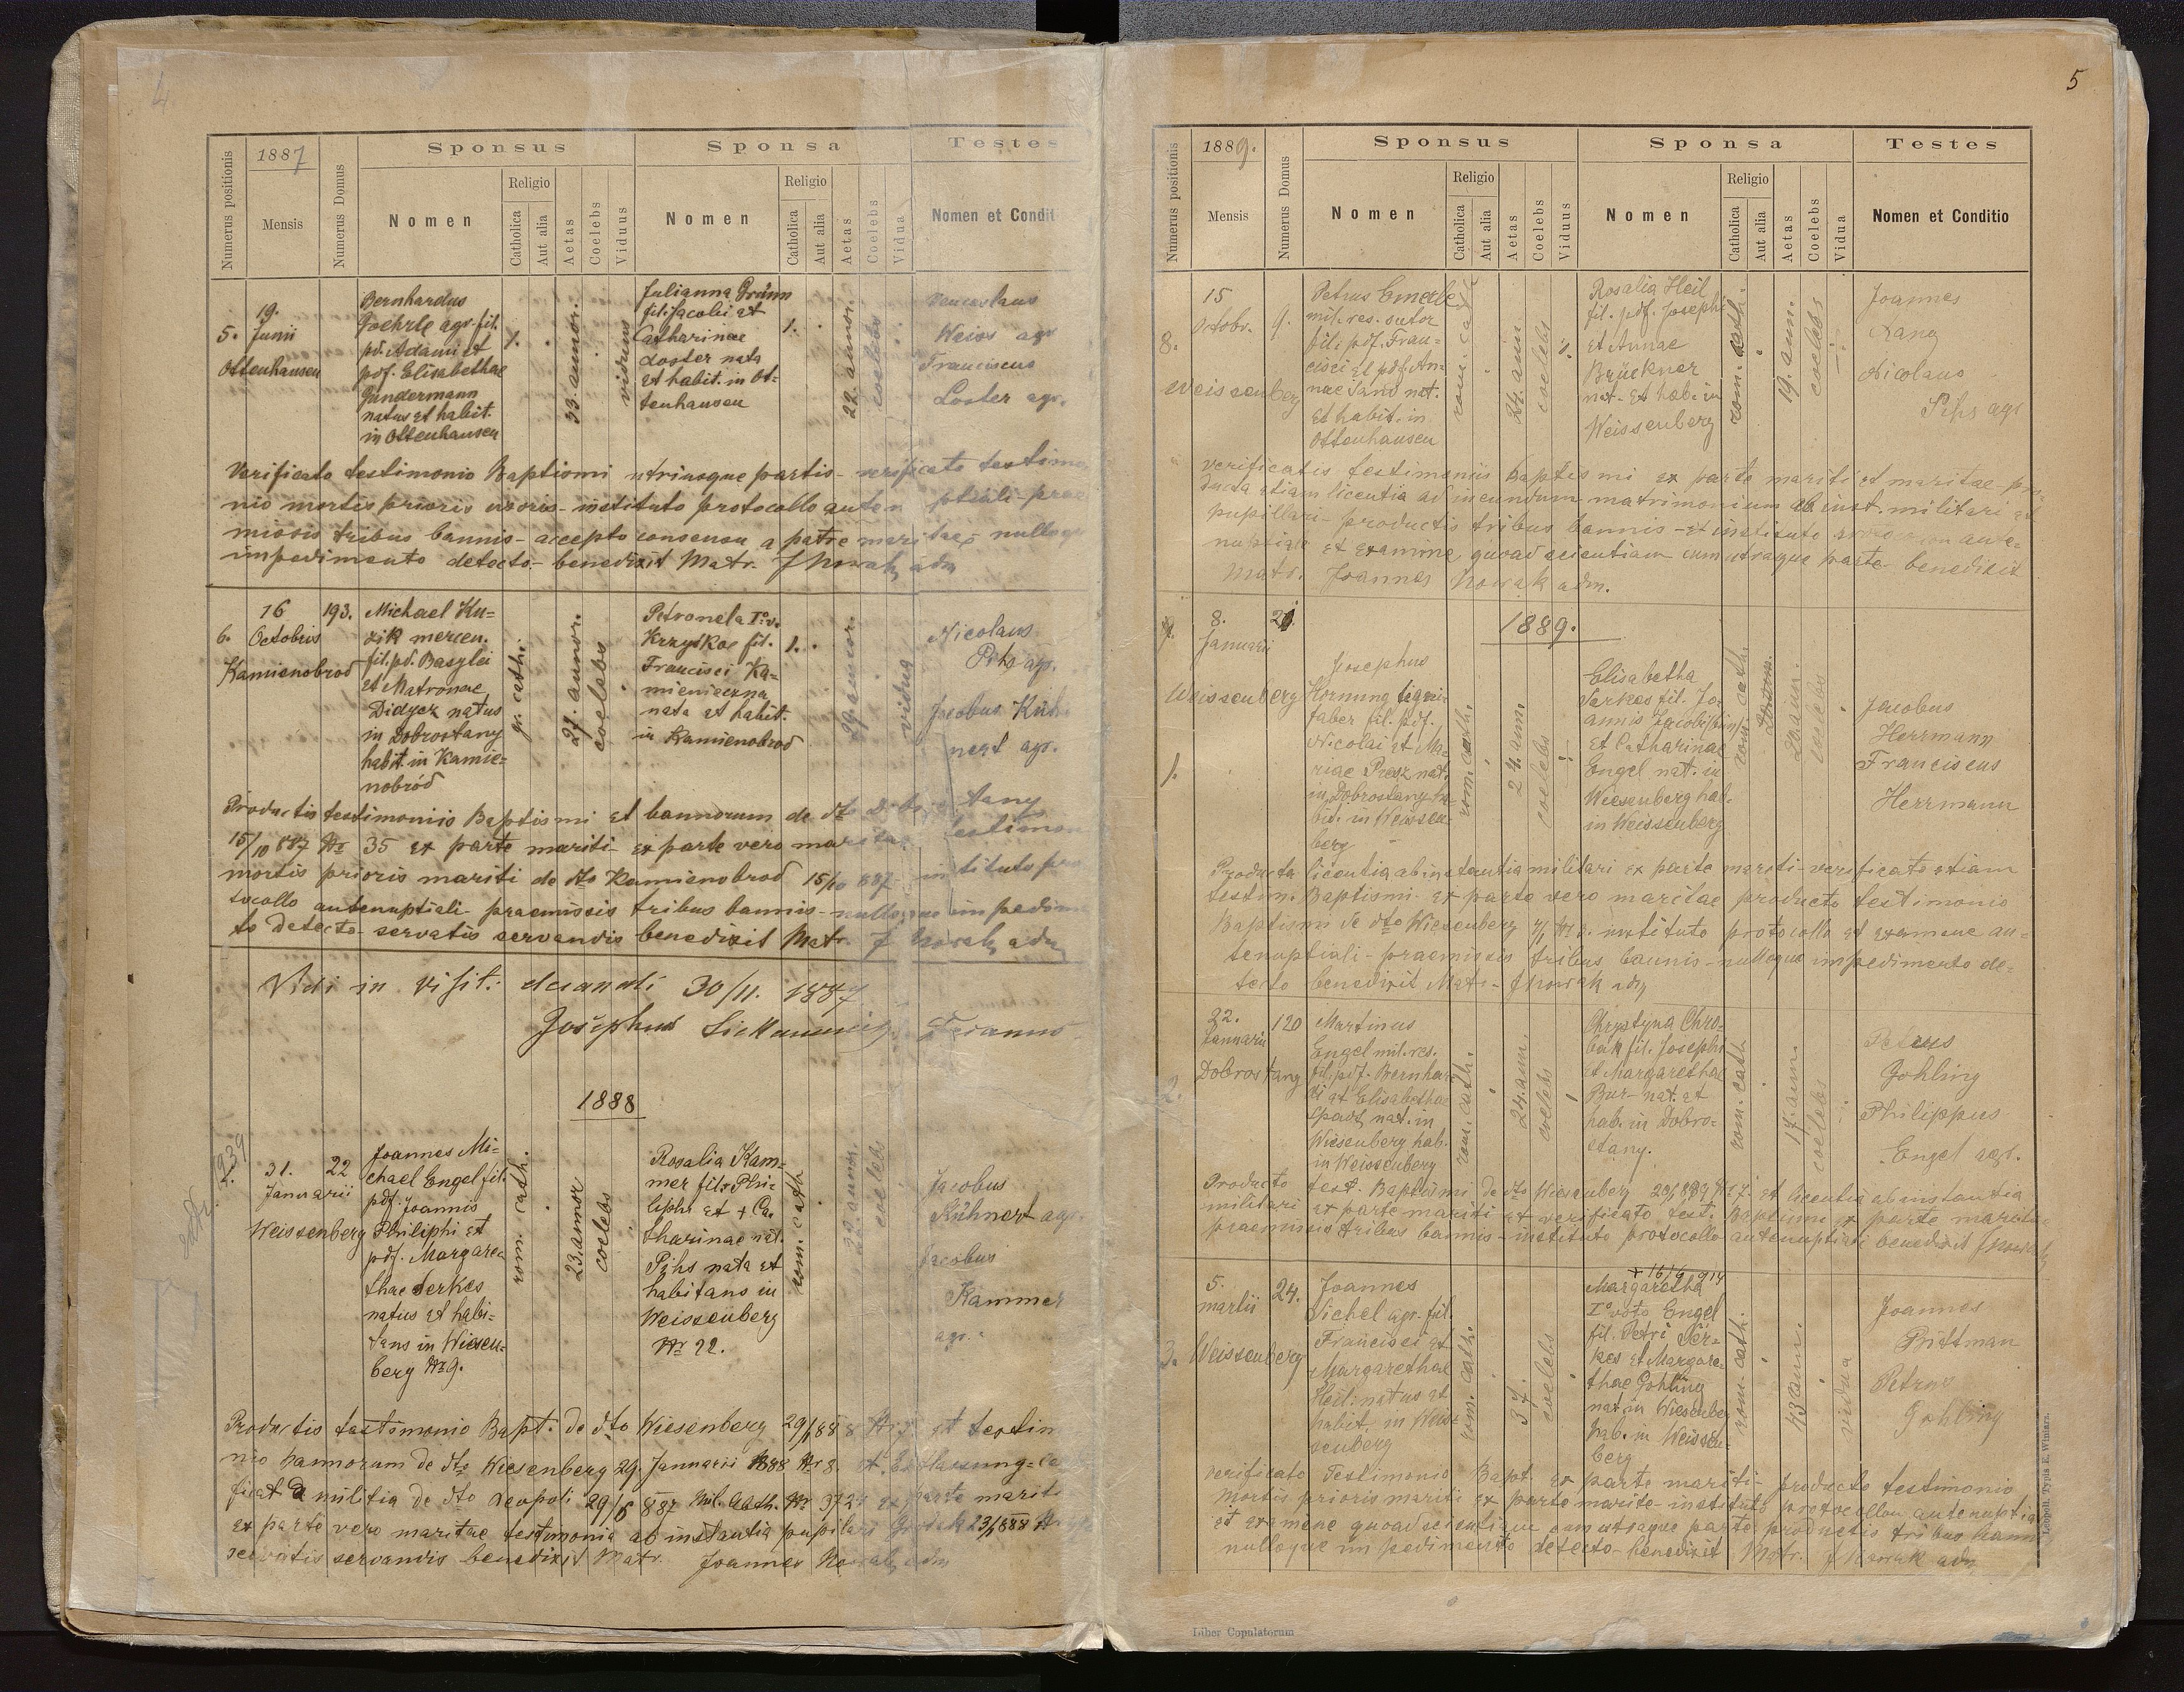 4
1887
Numerus positionis
Mensis
Numerus Domus
Sponsus
Sponsa
Testes
Nomen
Religio
Catholica
Aut alia
Aetas
Coelebs
Viduus
Nomen
Religio
Catholica
Aut alia
Aetas
Coelebs
Vidua
Nomen et Condit
5.
19.
Junii
Ottenhausen
Bernhardus
Goehrle agr. fil.
pd. Adami et
pdf. Elisabethae
Gundermann
natus et habit.
in Ottenhausen
1.
33. annor.
viduus
Julianna Grünn
fil. Jacobi et
Catharinae
Loster nata
et habit. in Ot-
tenhausen
1.
22. annor.
coelebs
Venceslaus
Weiss agr
Franciscus
Loster agr.
Verificato testimonio Baptismi utriusque partis - verificato testimo
nio mortis prioris uxoris - instituto protocollo anten ptiali - prae
missis tribus bannis - accepto consensu a patre maritae; nulloqu
impedimento detecto - benedixit Matr. J Nowak adm
6.
16
Octobris
Kamienobrod
193.
Michael Ku-
zik mercen.
fil. pd. Basylii
et Matronae
Didycz natus
in Dobrostany
habit. in Kamie-
nobród
gr. cath.
27. annor.
coelebs
Petronela I°v.
Krzyskoe fil.
Francisci Ka-
mienieczna
nata et habit.
in Kamienobrod
1.
29. annor.
vidua
Nicolaus
Pihs agr.
Jacobus Küh
nert agr.
Productis testimoniis Baptismi et bannorum de dto Dobrostany
15/10 887 Nr 35 ex parte mariti - ex parte vero maritae testimon
mortis prioris mariti de dto Kamienobrod 15/10 887 - instituto pro
tocollo antenuptiali - praemissis tribus bannis - nulloque impedime
to detecto - servatis servandis benedixit Matr. J Nowak adm
Vidi in visit: decanali 30/11. 1887
Josephus
1888
1.
31.
Januarii
Weissenberg
22
Joannes Mi-
chael Engel fil.
pdf. Joannis
Philiphi et
pdf. Margare-
thae Serkes
natus et habi-
tans in Wiesen-
berg Nr 9.
rom. cath.
23. annor
coelebs
Rosalia Kam-
mer fil + Phi-
liphi et + Ca
tharinae nat.
Pihs nata et
habitans in
Weissenberg
Nr 22.
rom. cath
22. annor.
coelebs
Jacobus
Kühnert agr.
Jacobus
Kammer
agr.
Productis testimonio Bapt. de dto Wiesenberg 29/1 88 8 Nr 7 et testim
nio bannorum de dto Wiesenberg 29. Januarii 1888 Nr 8. et Entlassung-Ce
ficat a militia de dto Leopoli 29/6 887 Mil. Abth. Nr 372 ex parte marit
ex parte vero maritae testimonia ab instantia pupilari Grodek 23/1 888
servatis servandis benedixit Matr. Joannes Nowak adm
5
1889.
Numerus positionis
Mensis
Numerus Domus
Sponsus
Sponsa
Testes
Nomen
Religio
Catholica
Aut alia
Aetas
Coelebs
Viduus
Nomen
Religio
Catholica
Aut alia
Aetas
Coelebs
Vidua
Nomen et Conditio
8.
15
Octobr.
Weissenberg
9.
Petrus Emerle
mil. res. sutor
fil. pdf. Fran-
cisci et pdf. An-
nae Sand nat.
et habit. in
Ottenhausen
rom. cath
24. ann.
coelebs
Rosalia Heil
fil. pdf. Josephi
et Annae
Brückner
nat. et hab. in
Weissenberg
rom. cath.
19. ann.
coelebs
Joannes
Lang
Nicolaus
Pihs agr
verificatis testimoniis baptismi ex parte mariti et maritae - pro-
ducta etiam licentia ad ineundum matrimonium ab inst. militari et
pupillari - productis tribus bannis - et instituto protocollo ante-
nuptiali et examine quoad scientiam cum utraque parte - benedixit
Matr. Joannes Nowak adm.
1889.
1.
8.
Januarii
Weissenberg
21
Josephus
Hornung ligni-
faber fil. pdf.
Nicolai et Ma-
riae Presz nat.
in Dobrostany ha-
bit. in Weissen-
berg
rom. cath.
24. ann.
coelebs
Elisabetha
Serkes fil. Jo-
annis Jacobi
et Catharinae
Engel nat. in
Wiesenberg hab.
in Weissenberg
rom. cath.
coelebs
Jacobus
Herrmann
Franciscus
Herrmann
Producta licentia ab instantia militari ex parte mariti - verificato etiam
testim. Baptismi - ex parte vero maritae producto testimonio
Baptismi de dto Wiesenberg instituto protocollo et examine an-
tenuptiali - praemissis tribus bannis - nulloque impedimento de-
tecto benedixit Matr - J Nowak adm
2.
22.
Januarii
Dobrostany
120
Martinus
Engel mil. res.
fil. pdf. Bernhar-
di et Elisabethae
Spas nat. in
Wiesenberg hab.
in Weissenberg
rom. cath.
24. ann
coelebs
Chrystyna Chro-
bak fil. Josephi
et Margarethae
Bur- nat. et
hab. in Dobro-
stany.
rom. cath
17. ann.
coelebs
Petrus
Gohling
Philippus
Engel agr.
Producto test. Baptismi de dto Wiesenberg 20/1 889 Nr 7. et licentia ab instantia
militari ex parte mariti et verificato test. Baptismi ex parte maritae
praemissis tribus bannis - instituto protocollo antenuptiali benedixit J Nowak
3.
5.
martii
Weissenberg
24.
Joannes
Vichel agr. fil.
Francisci et
Margarethae
Heil: natus et
habit. in Weis-
senberg
rom. cath.
37.
coelebs
+ 16/6 914
Margaretha
I° voto Engel
fil. Petri Ser-
kes et Margare-
thae Gohling
nat. in Wiesenberg
hab. in Weissen-
berg
rom. cath.
43 ann.
vidua
Joannes
Brittman
Petrus
Gohling
verificato Testimonio Bapt. ex parte mariti - producto testimonio
mortis prioris mariti ex parte marite - instituto protocollon antenuptia
et examine quoad scientiam cum utraque parte productis tribus bann
nulloque impedimento detecto - benedixit Matr. J Nowak adm
Liber Copulatorum
Leopoli. Typis E. Winiarz.